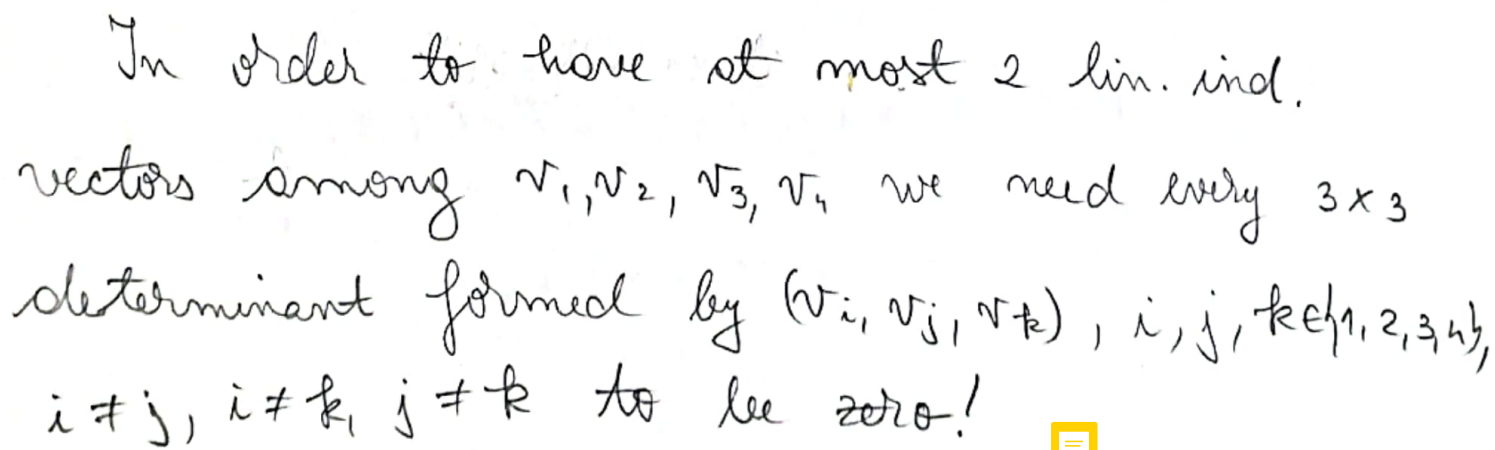 In order to have at most 2 lin. ind.
vectors among v₁, v₂, v₃, v₄ we need every 3 x 3
determinant formed by (vᵢ, vⱼ, vₖ), i, j, k ∈ {1, 2, 3, 4},
i ≠ j, i ≠ k, j ≠ k to be zero!